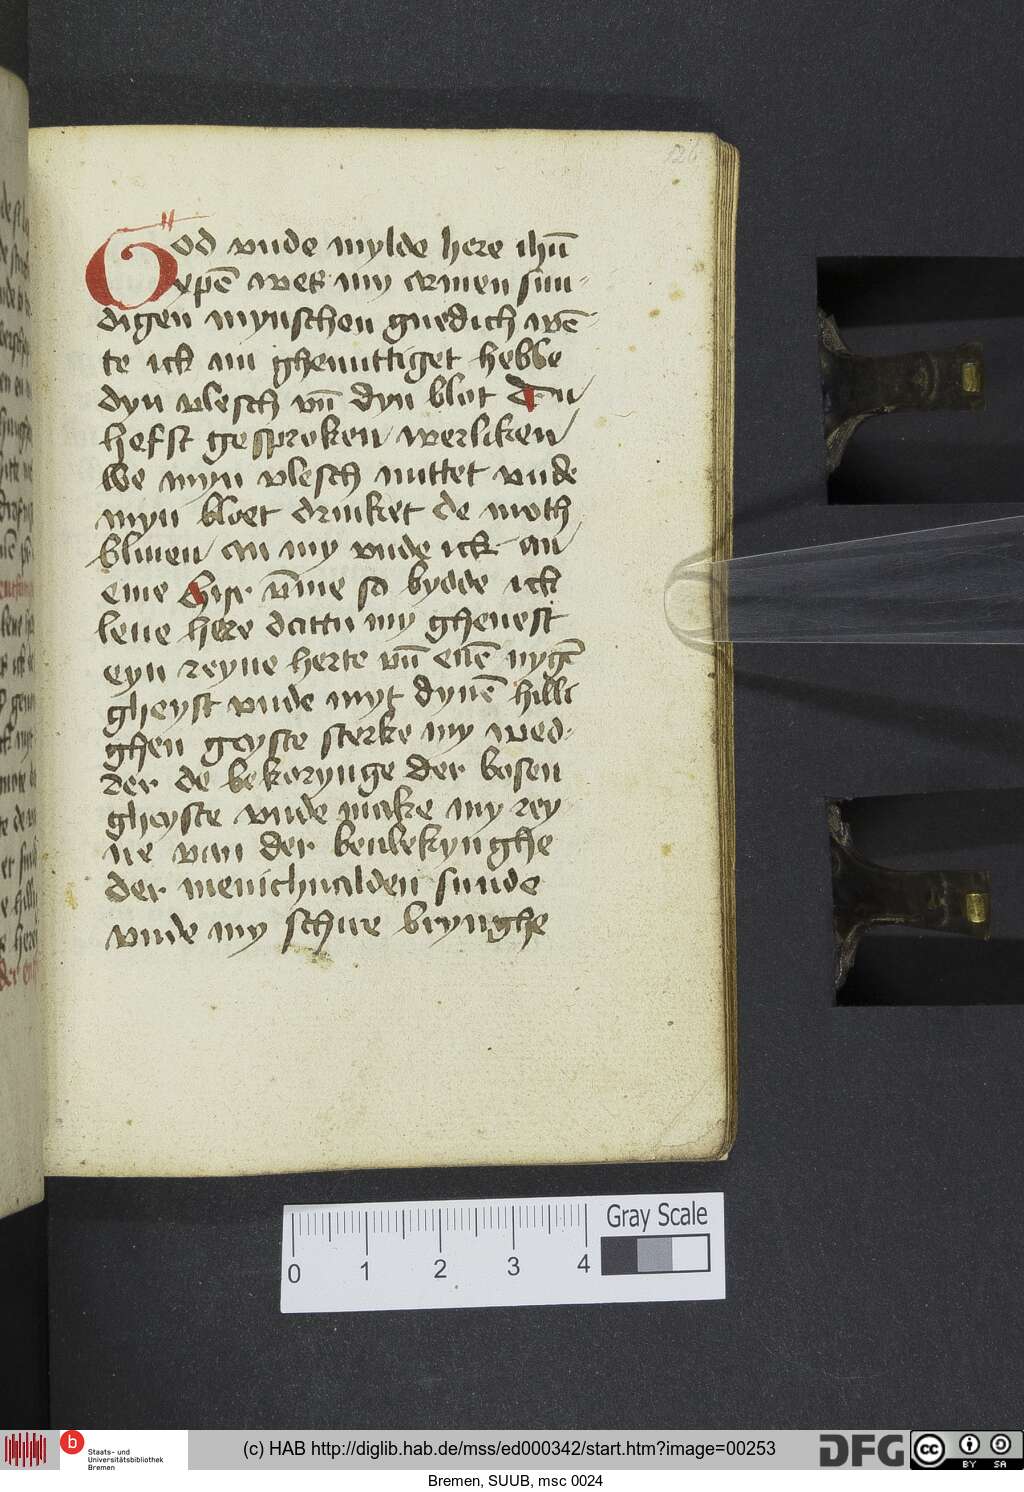 126
God vnde mylde here ihū
xpē wes my armen sun-
digen mynschen gnedich wē-
te ick an ghenuttiget hebbe
dyn vlesch vn̄ dyn blot du
hefst gesproken werliken
We myn vlesch nuttet vnde
myn bloet drinket de moth
bliuen an my vnde ick an
eme Hijr v̄me so bydde ick
leue here dattu my gheuest
eyn reyne herte vn̄ enē nygē
gheyst vnde myt dynē hilli
ghen geyste sterke my wed-
der de bekorynge der bosen
gheyste vnde make my rey
ne van der beulekynghe
der menichualden sunde
vnde my schire brynghe
0 1 2 3 4
Gray Scale
b Staats- und
Universitätsbibliothek
Bremen
(c) HAB http://diglib.hab.de/mss/ed000342/start.htm?image=00253
DFG
cc BY SA
Bremen, SUUB, msc 0024